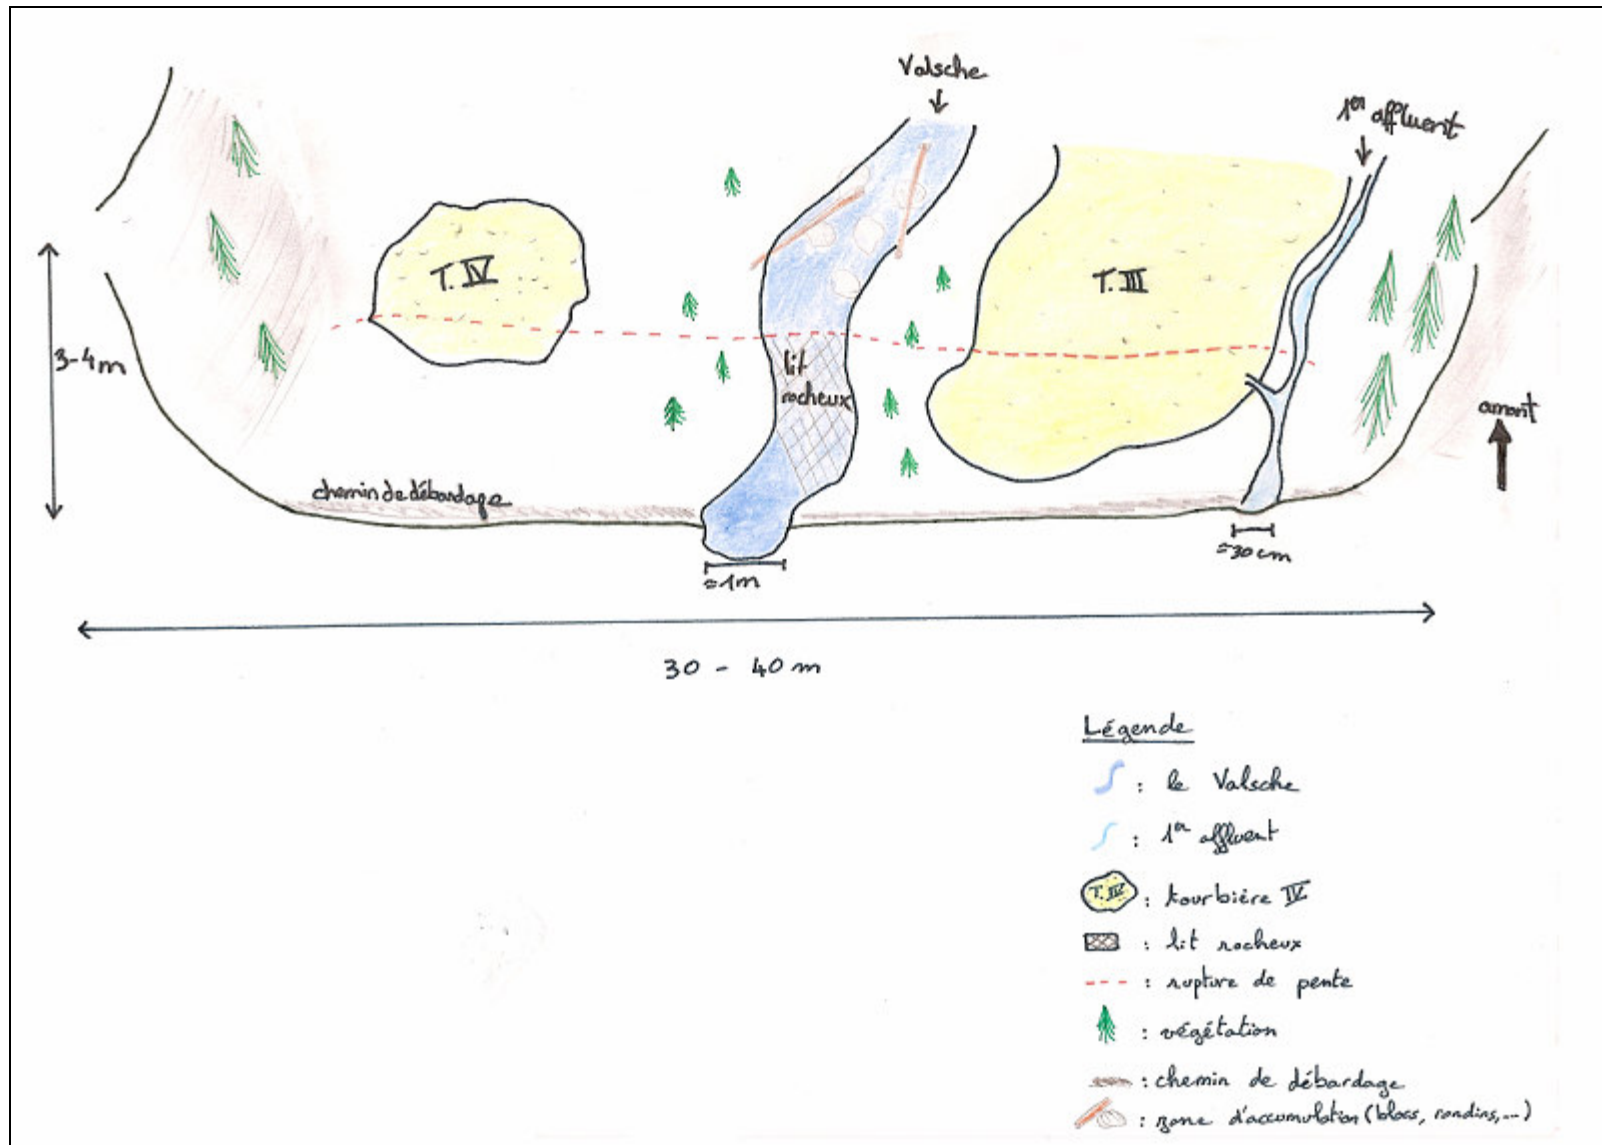 Valsche
1er affluent
T. IV
T. III
3-4m
lit
rocheux
amont
chemin de débardage
≈1m
≈30cm
30 - 40 m
Légende
: le Valsche
: 1er affluent
T. IV : tourbière IV
: lit rocheux
: rupture de pente
: végétation
: chemin de débardage
: zone d'accumulation (blocs, rondins,...)